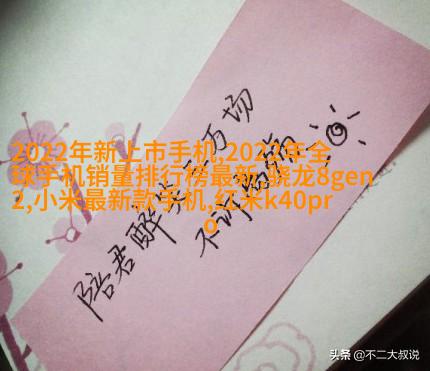 2022年新上市手机,2022年全
球手机销量排行榜最新,骁龙8gen
2,小米最新款手机,红米k40pr
o
陪君醉笑三万场
不诉离殇
头条 @不二大叔说